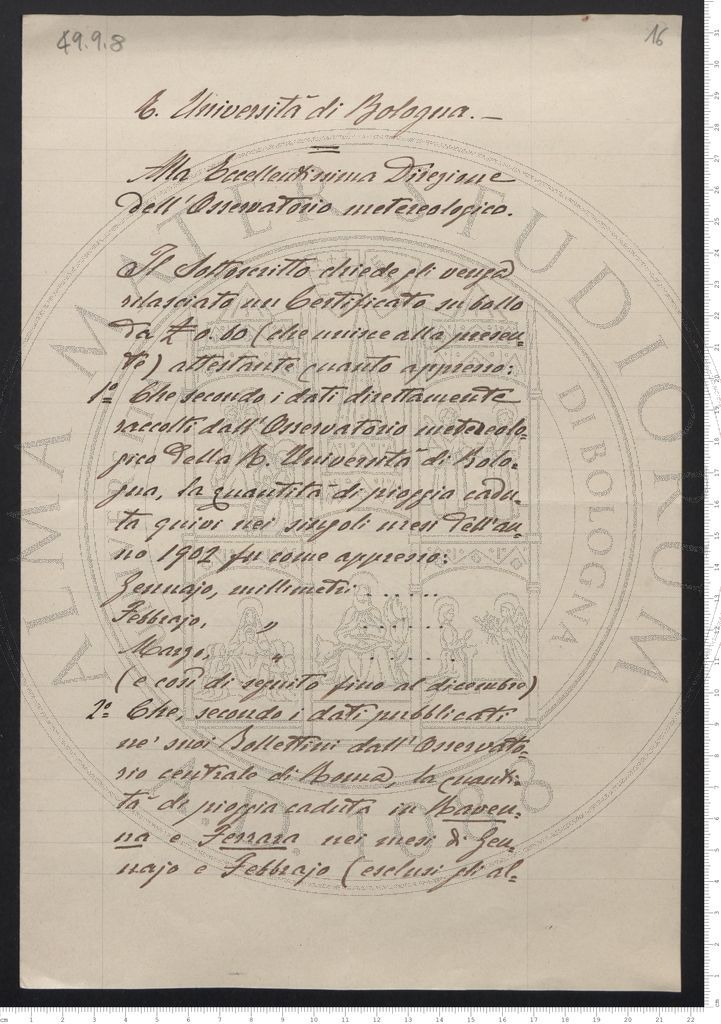 49.9.8
16
R. Università di Bologna.—
Alla Eccellentissima Direzione
dell'Osservatorio metereologico.
Il Sottoscritto chiede gli venga
rilasciato un Certificato in bollo
da £ 0.60 (che unisce alla presen-
te) attestante quanto appresso:
1º Che secondo i dati direttamente
raccolti dall'Osservatorio metereolo-
gico della R. Università di Bolo-
gna, la quantità di pioggia cadu-
ta quivi nei singoli mesi dell'an-
no 1902 fu come appresso:
Gennajo, millimetri . . . . . .
Febbrajo, „ . . . . . .
Marzo, „ . . . . .
(e così di seguito fino al dicembre)
2º Che, secondo i dati pubblicati
ne' suoi Bollettini dall'Osservato-
rio centrale di Roma, la quanti-
tà di pioggia caduta in Raven-
na e Ferrara nei mesi di Gen-
najo e Febbrajo (esclusi gli al-
ALMA MATER STUDIORUM
A.D. 1088
DI BOLOGNA